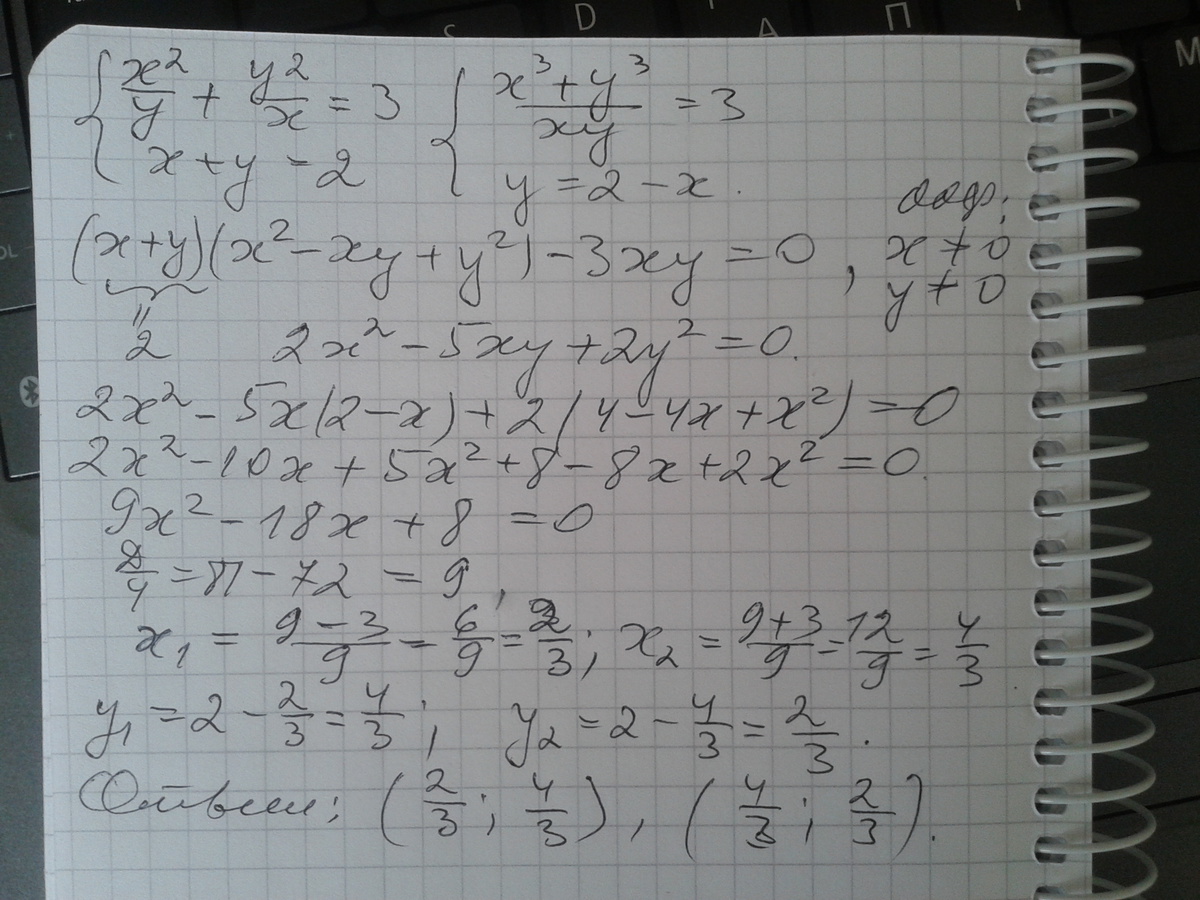 { x²/y + y²/x = 3 { (x³+y³)/xy = 3
x+y=2 y=2-x.
(x+y)(x²-xy+y²)-3xy=0, x≠0
y≠0
2 2x²-5xy+2y²=0.
2x²-5x(2-x)+2(4-4x+x²)=0
2x²-10x+5x²+8-8x+2x²=0.
9x²-18x+8=0
D/4=81-72=9,
x₁=(9-3)/9=6/9=2/3; x₂=(9+3)/9=12/9=4/3.
y₁=2-2/3=4/3; y₂=2-4/3=2/3.
Ответ: (2/3; 4/3), (4/3; 2/3).
D
А
П
М